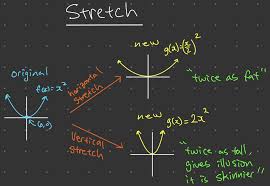 Stretch
original
f(x)=x²
(0,0)
horizontal
stretch
new
g(x)=(x/2)²
"twice as fat"
Vertical
stretch
new
g(x)=2x²
"twice as tall,
gives illusion
it is skinnier"